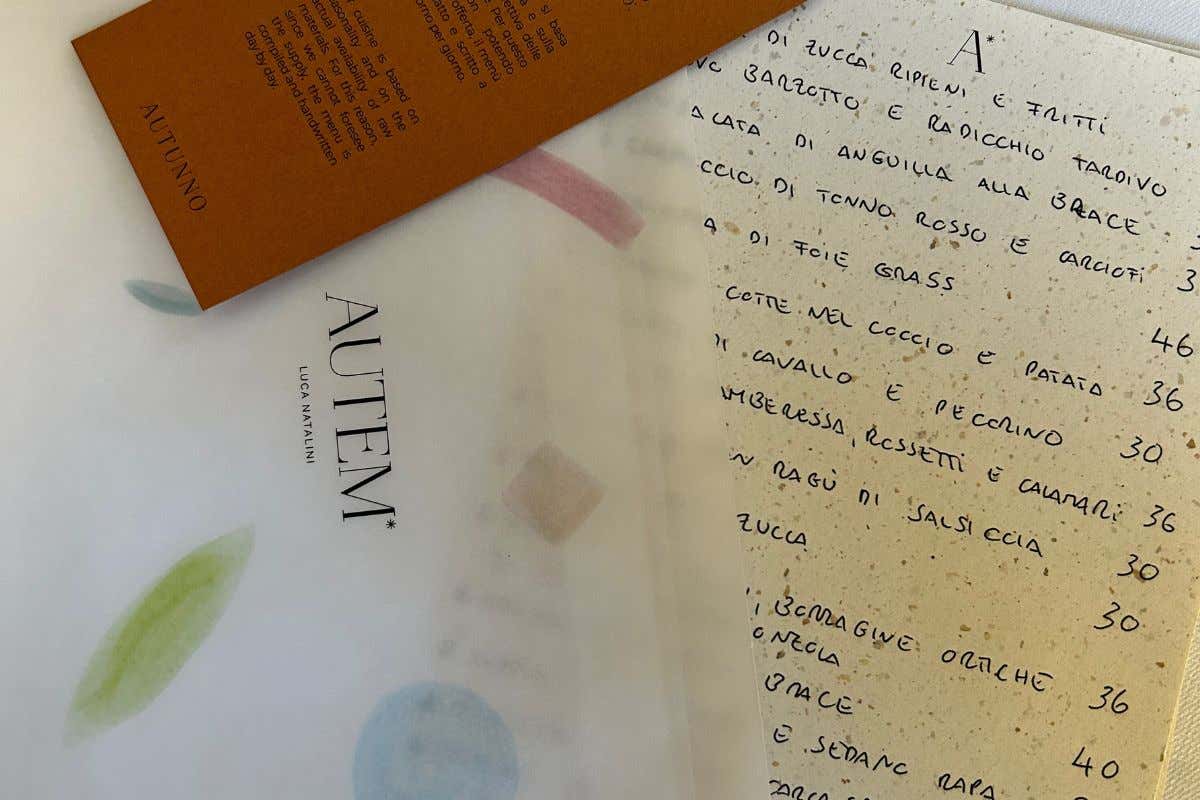 si basa
e sulla
ettiva delle
Per questo
potendo
offerta, il menù
atto e scritto a
orno per giorno.
cuisine is based on
asonality and on the
actual availability of raw
materials. For this reason,
since we cannot foresee
the supply, the menu is
compiled and handwritten
day by day.
AUTUNNO
AUTEM*
LUCA NATALINI
A*
DI ZUCCA RIPIENI E FRITTI
BARZOTTO E RADICCHIO TARDIVO
ACATA DI ANGUILLA ALLA BRACE
CCIO DI TONNO ROSSO E CARCIOFI 3
A DI FOIE GRASS
46
COTTE NEL COCCIO E PATATA 36
DI CAVALLO E PECORINO 30
AMBERESSA, ROSSETTI E CALAMARI 36
N RAGÙ DI SALSICCIA 30
ZUCCA 30
BORRAGINE ORTICHE 36
ONZOLA
BRACE 40
E SEDANO RAPA